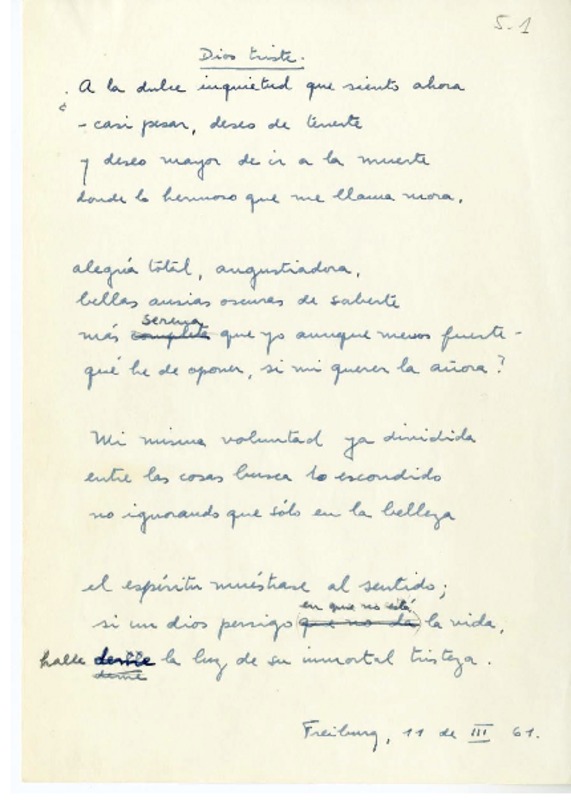 5-1
Dios triste.
¿A la dulce inquietud que siento ahora
- casi pesar, deseo de tenerte
y deseo mayor de ir a la muerte
donde lo hermoso que me llama mora,
alegría total, angustiadora,
bellas ansias oscuras de saberte
serena
más completa que yo aunque menos fuerte -
qué he de oponer, si mi querer la añora?
Mi misma voluntad ya dividida
entre las cosas busca lo escondido
no ignorando que sólo en la belleza
el espíritu muéstrase al sentido;
en que no está
si un dios persigo (que no da) la vida,
halle la luz de su inmortal tristeza.
deme
Freiburg, 11 de III 61.